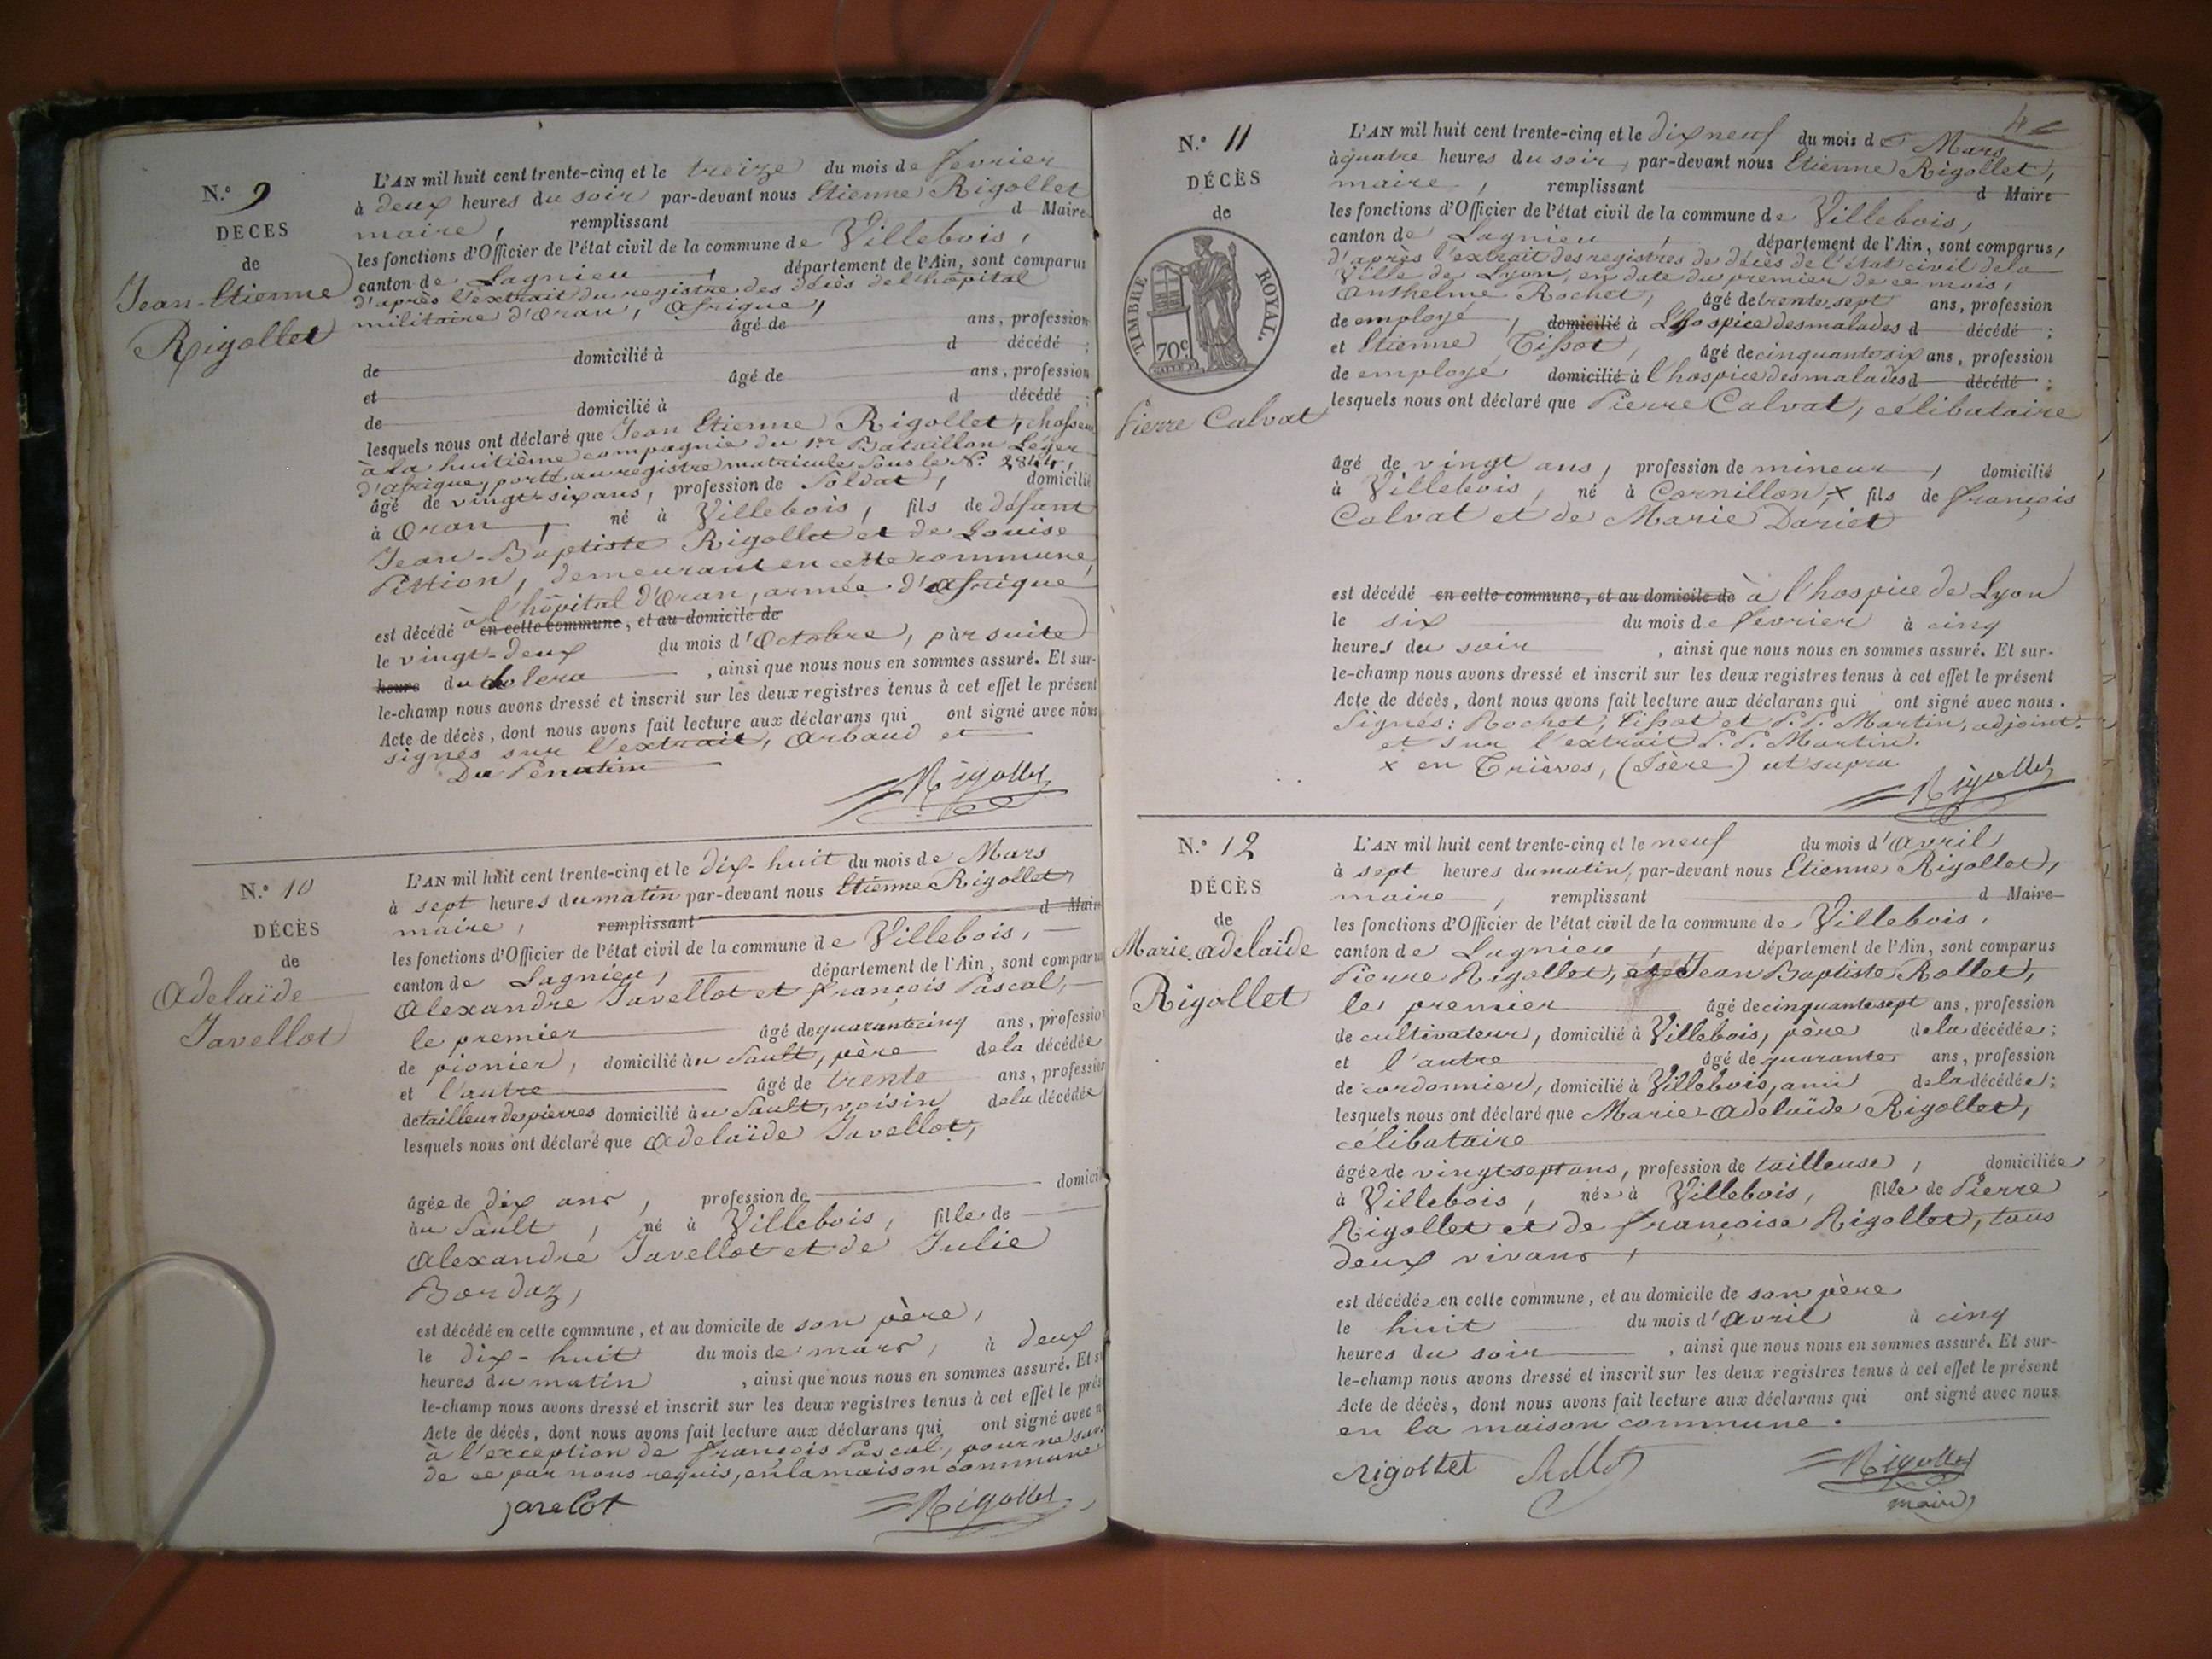 N.° 9
DÉCÈS
de
Jean-Etienne
Rigollet
L'AN mil huit cent trente-cinq et le treize du mois de fevrier
à deux heures du soir par-devant nous Etienne Rigollet
maire, remplissant d Maire
les fonctions d'Officier de l'état civil de la commune de Villebois,
canton de Lagnieu, département de l'Ain, sont comparus
d'après l'extrait du registre des décès de l'hôpital
militaire d'Oran, Afrique,
âgé de ans, profession
de domicilié à d décédé ;
et âgé de ans, profession
de domicilié à d décédé ;
lesquels nous ont déclaré que Jean Etienne Rigollet, chasseur
à la huitième compagnie du 1er Bataillon Léger
d'afrique, porté au registre matricule sous le N.° 2844,
âgé de vingt-six ans, profession de Soldat, domicilié
à Oran, né à Villebois, fils de défunt
Jean-Baptiste Rigollet et de Louise
Pittion, demeurant en cette commune,
est décédé à l'hôpital d'Oran, armée d'Afrique
en cette commune, et au domicile de
le vingt-deux du mois d'Octobre, par suite
heure du Colera, ainsi que nous nous en sommes assuré. Et sur-
le-champ nous avons dressé et inscrit sur les deux registres tenus à cet effet le présent
Acte de décès, dont nous avons fait lecture aux déclarans qui ont signé avec nous
signés sur l'extrait, Arbaud et
Rigollet
N.° 10
DÉCÈS
de
Adelaïde
Javellot
L'AN mil huit cent trente-cinq et le dix-huit du mois de Mars
à sept heures du matin par-devant nous Etienne Rigollet,
maire, remplissant d Maire
les fonctions d'Officier de l'état civil de la commune de Villebois,
canton de Lagnieu, département de l'Ain, sont comparus
Alexandre Javellot et François Pascal,
le premier âgé de quarante cinq ans, profession
de pionier, domicilié au Sault, père de la décédée
et l'autre âgé de trente ans, profession
de tailleur de pierres domicilié au Sault, voisin de la décédée
lesquels nous ont déclaré que Adelaïde Javellot,
âgée de dix ans, profession de domicilié
au Sault, né à Villebois, fille de
Alexandre Javellot et de Julie
Bordaz,
est décédé en cette commune, et au domicile de son père,
le dix-huit du mois de mars, à deux
heures du matin, ainsi que nous nous en sommes assuré. Et sur-
le-champ nous avons dressé et inscrit sur les deux registres tenus à cet effet le présent
Acte de décès, dont nous avons fait lecture aux déclarans qui ont signé avec nous
à l'exception de François Pascal, pour ne savoir
de ce par nous requis, en la maison commune
javelot
Rigollet
4
N.° 11
DÉCÈS
de
TIMBRE ROYAL.
70c
Pierre Calvat
L'AN mil huit cent trente-cinq et le dix neuf du mois de Mars
à quatre heures du soir, par-devant nous Etienne Rigollet,
maire, remplissant d Maire
les fonctions d'Officier de l'état civil de la commune de Villebois,
canton de Lagnieu, département de l'Ain, sont comparus,
d'après l'extrait des registres de décès de l'état civil de la
Ville de Lyon, en date du premier de ce mois,
Anthelme Rochet, âgé de trente-sept ans, profession
de employé, domicilié à L'hospice des malades d décédé ;
et Etienne Tissot, âgé de cinquante six ans, profession
de employé domicilié à l'hospice des malades d décédé ;
lesquels nous ont déclaré que Pierre Calvat, célibataire
âgé de vingt ans, profession de mineur, domicilié
à Villebois, né à Cornillon, x fils de françois
Calvat et de Marie Dariet
est décédé en cette commune, et au domicile de à l'hospice de Lyon
le six du mois de fevrier à cinq
heures du soir, ainsi que nous nous en sommes assuré. Et sur-
le-champ nous avons dressé et inscrit sur les deux registres tenus à cet effet le présent
Acte de décès, dont nous avons fait lecture aux déclarans qui ont signé avec nous.
Signés: Rochet, Tissot et P. P. Martin, adjoint.
et sur l'extrait P. P. Martin.
x en Trièves, (Isère) ut supra
Rigollet
N.° 12
DÉCÈS
de
Marie adelaïde
Rigollet
L'AN mil huit cent trente-cinq et le neuf du mois d'avril
à sept heures du matin, par-devant nous Etienne Rigollet,
maire, remplissant d Maire
les fonctions d'Officier de l'état civil de la commune de Villebois,
canton de Lagnieu, département de l'Ain, sont comparus
Pierre Rigollet, et Jean Baptiste Rollet,
le premier âgé de cinquante sept ans, profession
de cultivateur, domicilié à Villebois, père de la décédée ;
et l'autre âgé de quarante ans, profession
de cordonnier, domicilié à Villebois, ami de la décédée ;
lesquels nous ont déclaré que Marie-Adelaïde Rigollet,
célibataire
âgée de vingt sept ans, profession de tailleuse, domiciliée
à Villebois, née à Villebois, fille de Pierre
Rigollet et de françoise Rigollet, tous
deux vivans,
est décédée en cette commune, et au domicile de son père
le huit du mois d'avril à cinq
heures du soir, ainsi que nous nous en sommes assuré. Et sur-
le-champ nous avons dressé et inscrit sur les deux registres tenus à cet effet le présent
Acte de décès, dont nous avons fait lecture aux déclarans qui ont signé avec nous
en la maison commune.
Rigollet Rollet
Rigollet
maire